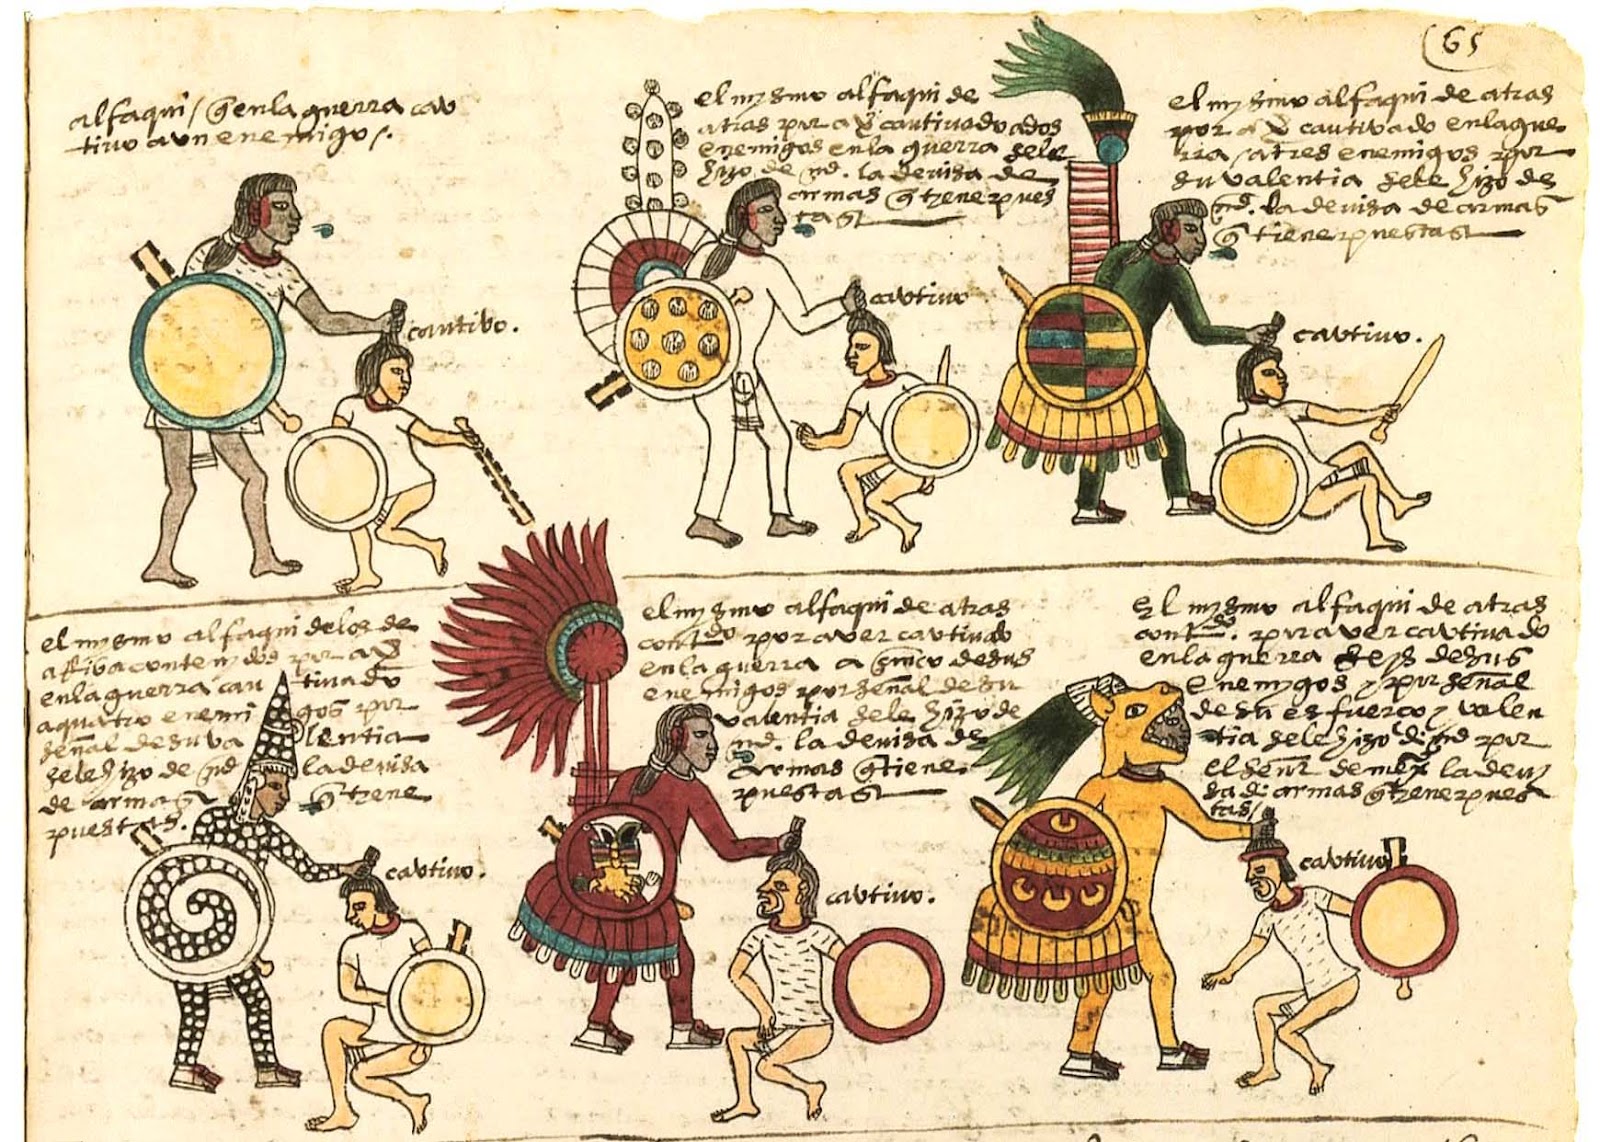 65
alfaqui / q̃ en la guerra cau
tivo a un enemigo /.
cautibo.
el mysmo alfaqui de
atras por a v̄ cautivado a dos
enemigos en la guerra sele
hizo de md. la devisa de
armas q̃ tiene pues
tas
cautivo
el mysmo alfaqui de atras
por a v̄ cautivado en la gue
rra / a tres enemigos por
su valentia sele hizo de
md. la devisa de armas
q̃ tiene puestas
cautivo.
el mysmo alfaqui de los de
arriba contenydos por a v̄
en la guerra cautivado
a quatro enemigos por
señal de su valentia
sele hizo de md la devisa
de armas q̃ tiene
puestas.
cautivo.
el mysmo alfaqui de atras
contdo por aver cautivado
en la guerra a cinco de sus
enemigos por señal de su
valentia sele hizo de
md. la devisa de
armas q̃ tiene
puestas
cautivo.
El mysmo alfaqui de atras
contdo. por aver cautivado
en la guerra seys de sus
enemygos y por señal
de su esfuerço y valen
tia sele hizo di md por
el señor de mexco la devy
sa di armas q̃ tiene pues
tas /
cautivo